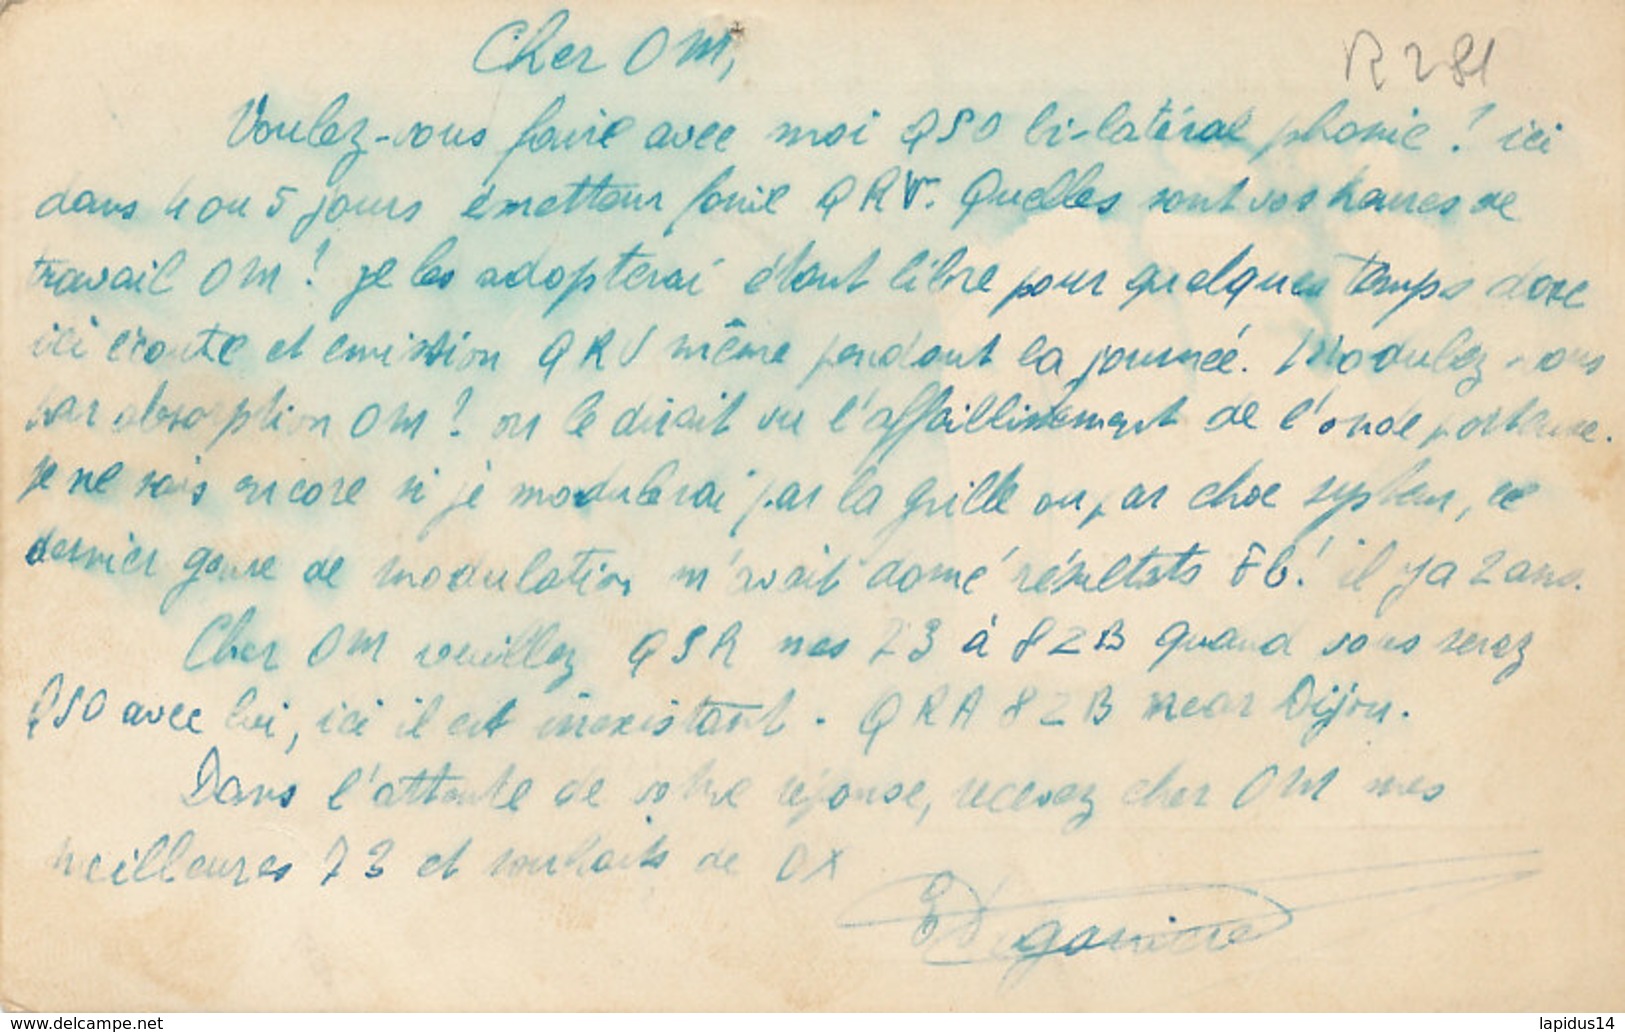 Cher OM,
R 281
Voulez-vous faire avec moi QSO bi-latéral phonie ! ici
dans 4 ou 5 jours émetteur fonie QRV. Quelles sont vos heures de
travail OM ! je les adopterai étant libre pour quelques temps donc
ici écoute et émission QRV même pendant la journée. Modulez-vous
par absorption OM ? on le dirait vu l'affaiblissement de l'onde porteuse.
je ne sais encore si je modulerai par la grille ou par choc system, ce
dernier genre de modulation m'avait donné résultats FB ! il y a 2 ans.
Cher OM veuillez QSR mes 73 à 8ZB quand vous serez
QSO avec lui, ici il est inexistant. QRA 8ZB near Dijon.
Dans l'attente de votre réponse, recevez cher OM mes
meilleures 73 et souhaits de DX
www.delcampe.net
lapidus14